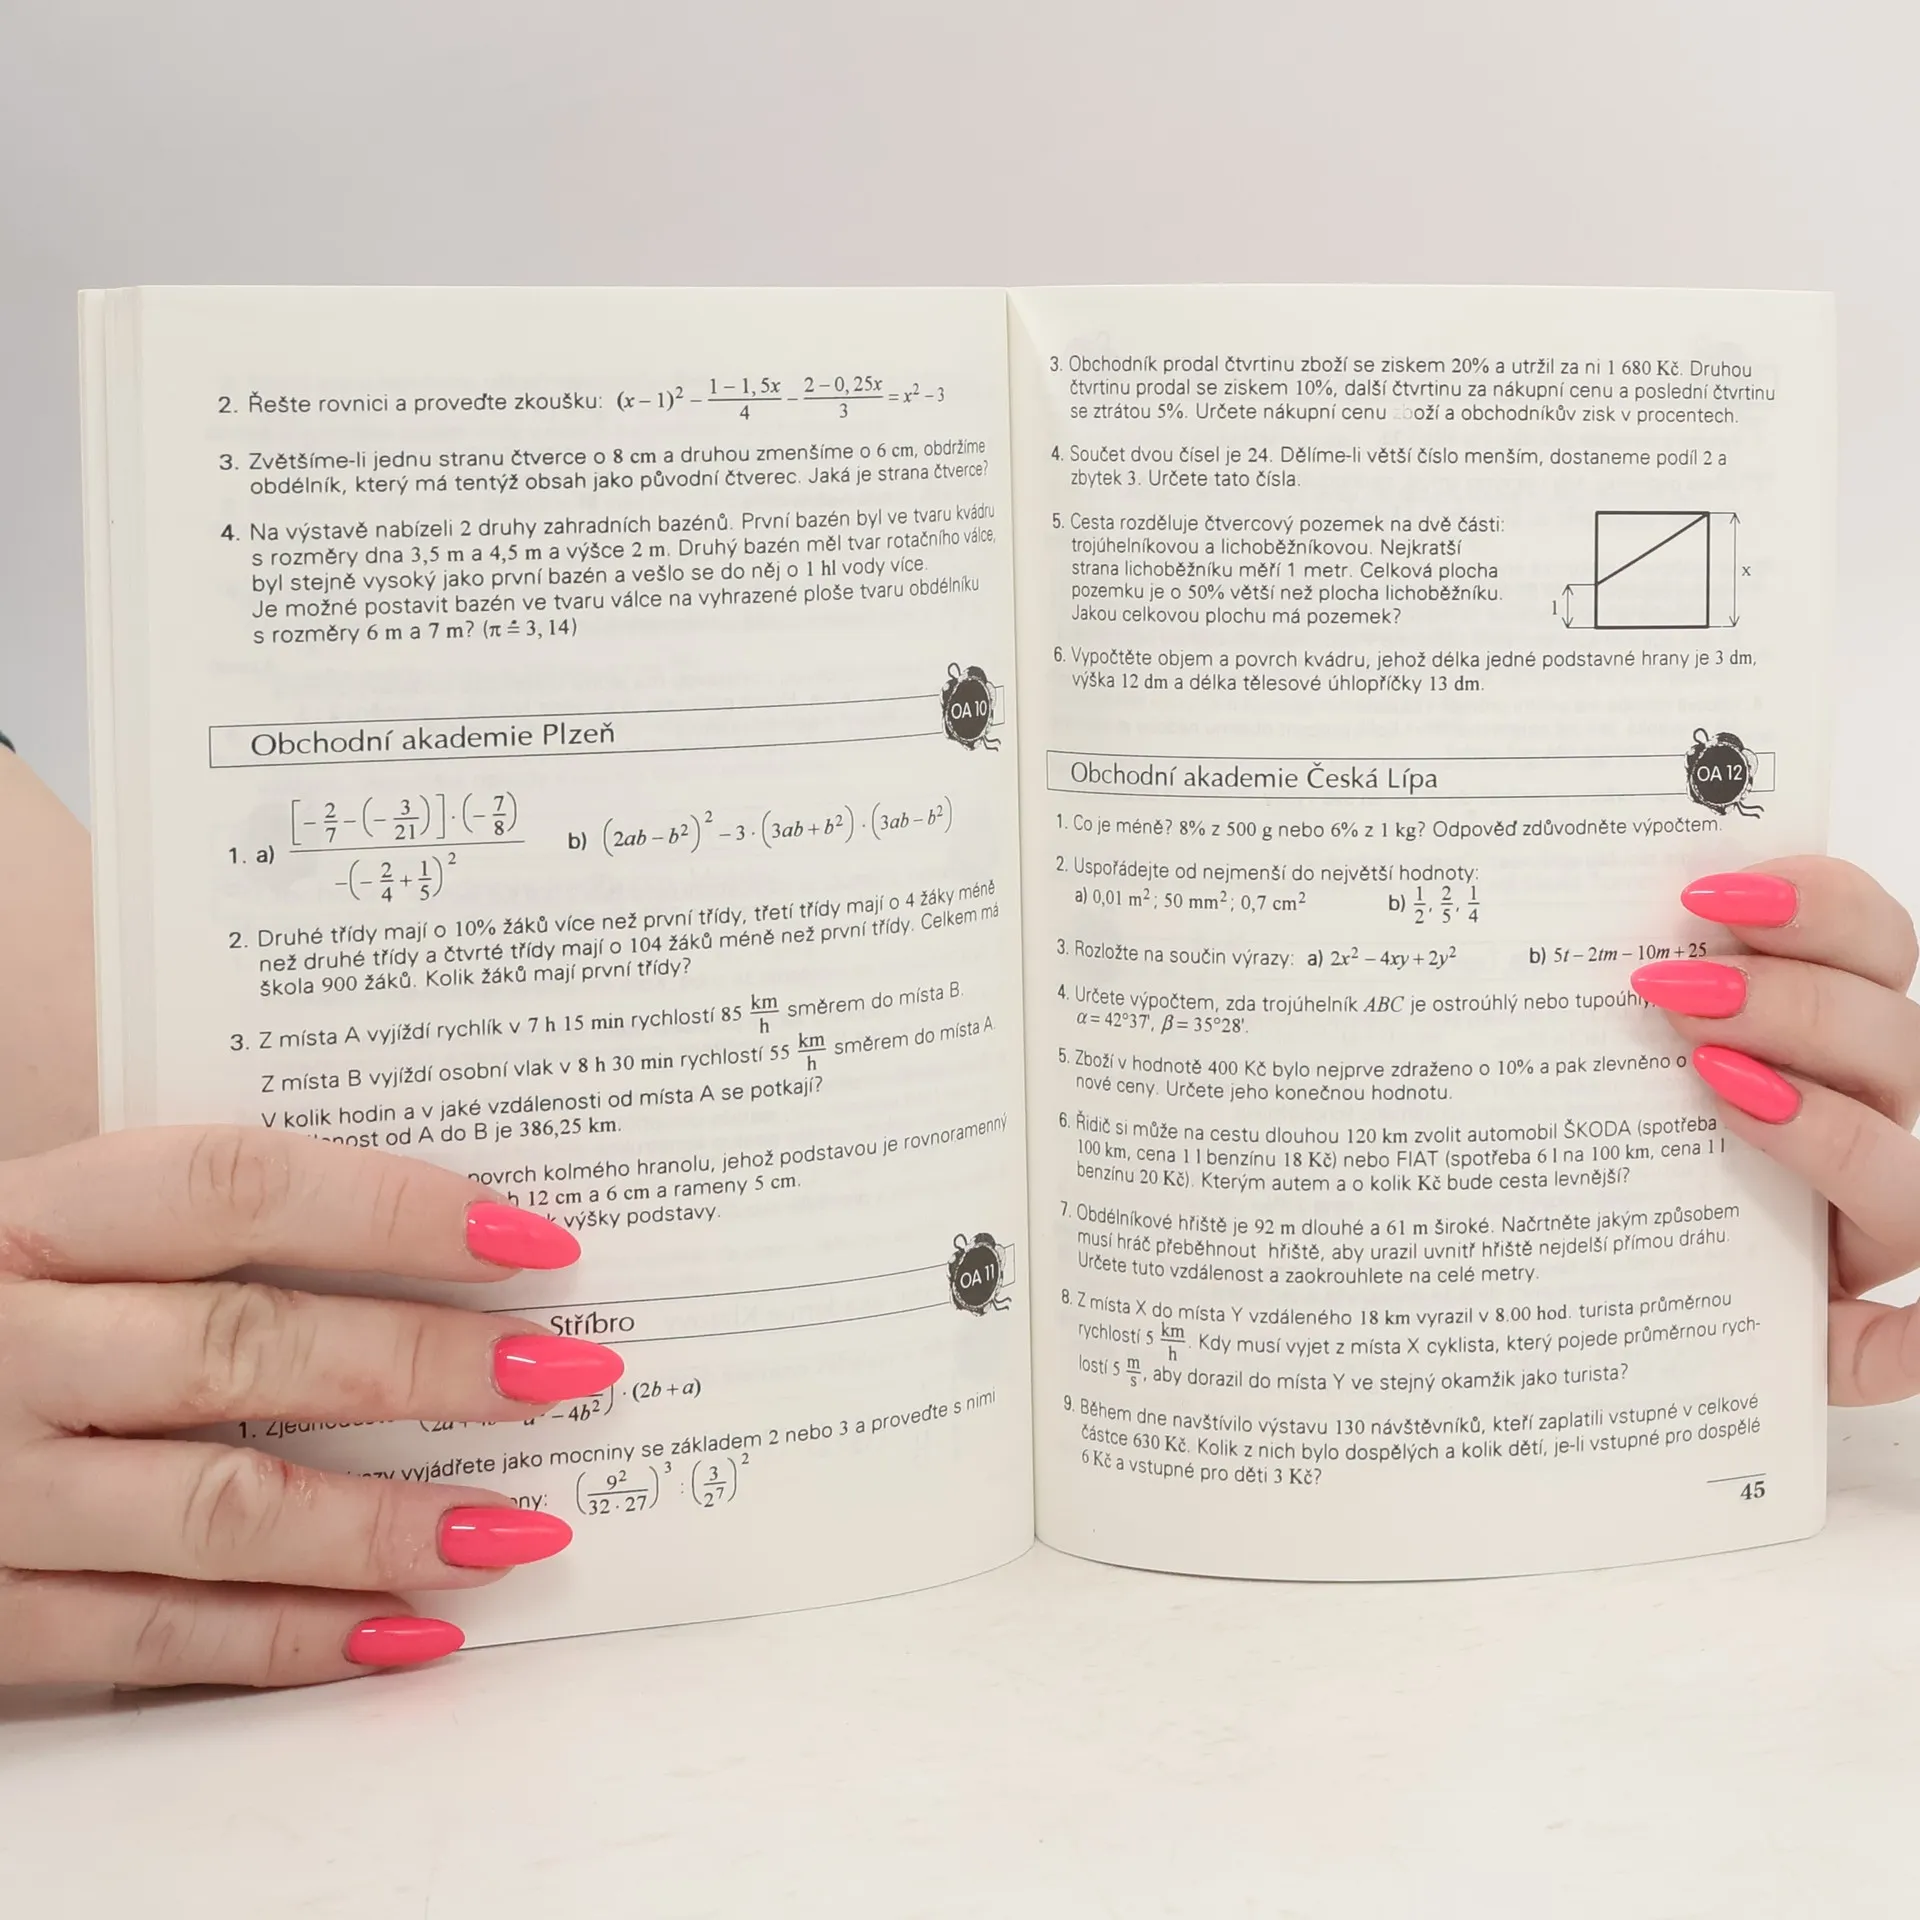 2. Řešte rovnici a proveďte zkoušku: (x – 1)² – (1 – 1,5x)/4 – (2 – 0,25x)/3 = x² – 3
3. Zvětšíme-li jednu stranu čtverce o 8 cm a druhou zmenšíme o 6 cm, obdržíme
obdélník, který má tentýž obsah jako původní čtverec. Jaká je strana čtverce?
4. Na výstavě nabízeli 2 druhy zahradních bazénů. První bazén byl ve tvaru kvádru
s rozměry dna 3,5 m a 4,5 m a výšce 2 m. Druhý bazén měl tvar rotačního válce,
byl stejně vysoký jako první bazén a vešlo se do něj o 1 hl vody více.
Je možné postavit bazén ve tvaru válce na vyhrazené ploše tvaru obdélníku
s rozměry 6 m a 7 m? (π ≐ 3,14)
OA 10
Obchodní akademie Plzeň
1. a) [–2/7 – (–3/21)] · (–7/8) / –(–2/4 + 1/5)² b) (2ab – b²)² – 3 · (3ab + b²) · (3ab – b²)
2. Druhé třídy mají o 10% žáků více než první třídy, třetí třídy mají o 4 žáky méně
než druhé třídy a čtvrté třídy mají o 104 žáků méně než první třídy. Celkem má
škola 900 žáků. Kolik žáků mají první třídy?
3. Z místa A vyjíždí rychlík v 7 h 15 min rychlostí 85 km/h směrem do místa B.
Z místa B vyjíždí osobní vlak v 8 h 30 min rychlostí 55 km/h směrem do místa A.
V kolik hodin a v jaké vzdálenosti od místa A se potkají?
od A do B je 386,25 km.
povrch kolmého hranolu, jehož podstavou je rovnoramenný
12 cm a 6 cm a rameny 5 cm.
výšky podstavy.
OA 11
Stříbro
1. – 4b²) · (2b + a)
vyjádřete jako mocniny se základem 2 nebo 3 a proveďte s nimi
(9²/(32 · 27))³ : (3/2⁷)²
3. Obchodník prodal čtvrtinu zboží se ziskem 20% a utržil za ni 1 680 Kč. Druhou
čtvrtinu prodal se ziskem 10%, další čtvrtinu za nákupní cenu a poslední čtvrtinu
se ztrátou 5%. Určete nákupní cenu zboží a obchodníkův zisk v procentech.
4. Součet dvou čísel je 24. Dělíme-li větší číslo menším, dostaneme podíl 2 a
zbytek 3. Určete tato čísla.
5. Cesta rozděluje čtvercový pozemek na dvě části:
trojúhelníkovou a lichoběžníkovou. Nejkratší
strana lichoběžníku měří 1 metr. Celková plocha
pozemku je o 50% větší než plocha lichoběžníku.
Jakou celkovou plochu má pozemek?
1
x
6. Vypočtěte objem a povrch kvádru, jehož délka jedné podstavné hrany je 3 dm,
výška 12 dm a délka tělesové úhlopříčky 13 dm.
OA 12
Obchodní akademie Česká Lípa
1. Co je méně? 8% z 500 g nebo 6% z 1 kg? Odpověď zdůvodněte výpočtem.
2. Uspořádejte od nejmenší do největší hodnoty:
a) 0,01 m²; 50 mm²; 0,7 cm² b) 1/2, 2/5, 1/4
3. Rozložte na součin výrazy: a) 2x² – 4xy + 2y² b) 5t – 2tm – 10m + 25
4. Určete výpočtem, zda trojúhelník ABC je ostroúhlý nebo
α = 42°37', β = 35°28'.
5. Zboží v hodnotě 400 Kč bylo nejprve zdraženo o 10% a pak zlevněno o
nové ceny. Určete jeho konečnou hodnotu.
6. Řidič si může na cestu dlouhou 120 km zvolit automobil ŠKODA (spotřeba
100 km, cena 1 l benzínu 18 Kč) nebo FIAT (spotřeba 6 l na 100 km, cena 1 l
benzínu 20 Kč). Kterým autem a o kolik Kč bude cesta levnější?
7. Obdélníkové hřiště je 92 m dlouhé a 61 m široké. Načrtněte jakým způsobem
musí hráč přeběhnout hřiště, aby urazil uvnitř hřiště nejdelší přímou dráhu.
Určete tuto vzdálenost a zaokrouhlete na celé metry.
8. Z místa X do místa Y vzdáleného 18 km vyrazil v 8.00 hod. turista průměrnou
rychlostí 5 km/h. Kdy musí vyjet z místa X cyklista, který pojede průměrnou rych-
lostí 5 m/s, aby dorazil do místa Y ve stejný okamžik jako turista?
9. Během dne navštívilo výstavu 130 návštěvníků, kteří zaplatili vstupné v celkové
částce 630 Kč. Kolik z nich bylo dospělých a kolik dětí, je-li vstupné pro dospělé
6 Kč a vstupné pro děti 3 Kč?
45